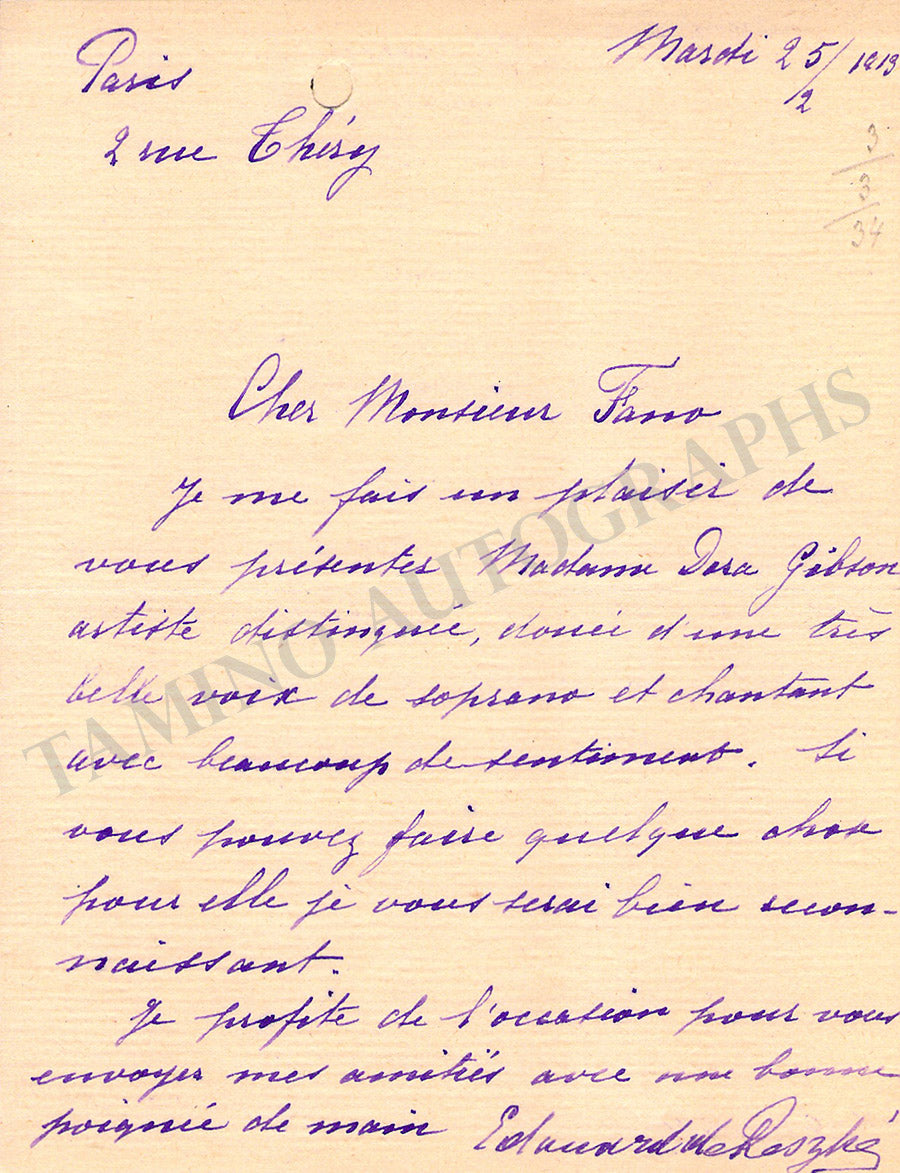 Paris
Mardi 25/2 1913
2 rue Théry
3/3/34
Cher Monsieur Fano
Je me fais un plaisir de
vous présenter Madame Dora Gibson
artiste distinguée, douée d'une très
belle voix de soprano et chantant
avec beaucoup de sentiment. Si
vous pouvez faire quelque chose
pour elle je vous serai bien recon-
naissant.
Je profite de l'occasion pour vous
envoyer mes amitiés avec une bonne
poignée de main Edouard de Reszké
TAMINO AUTOGRAPHS